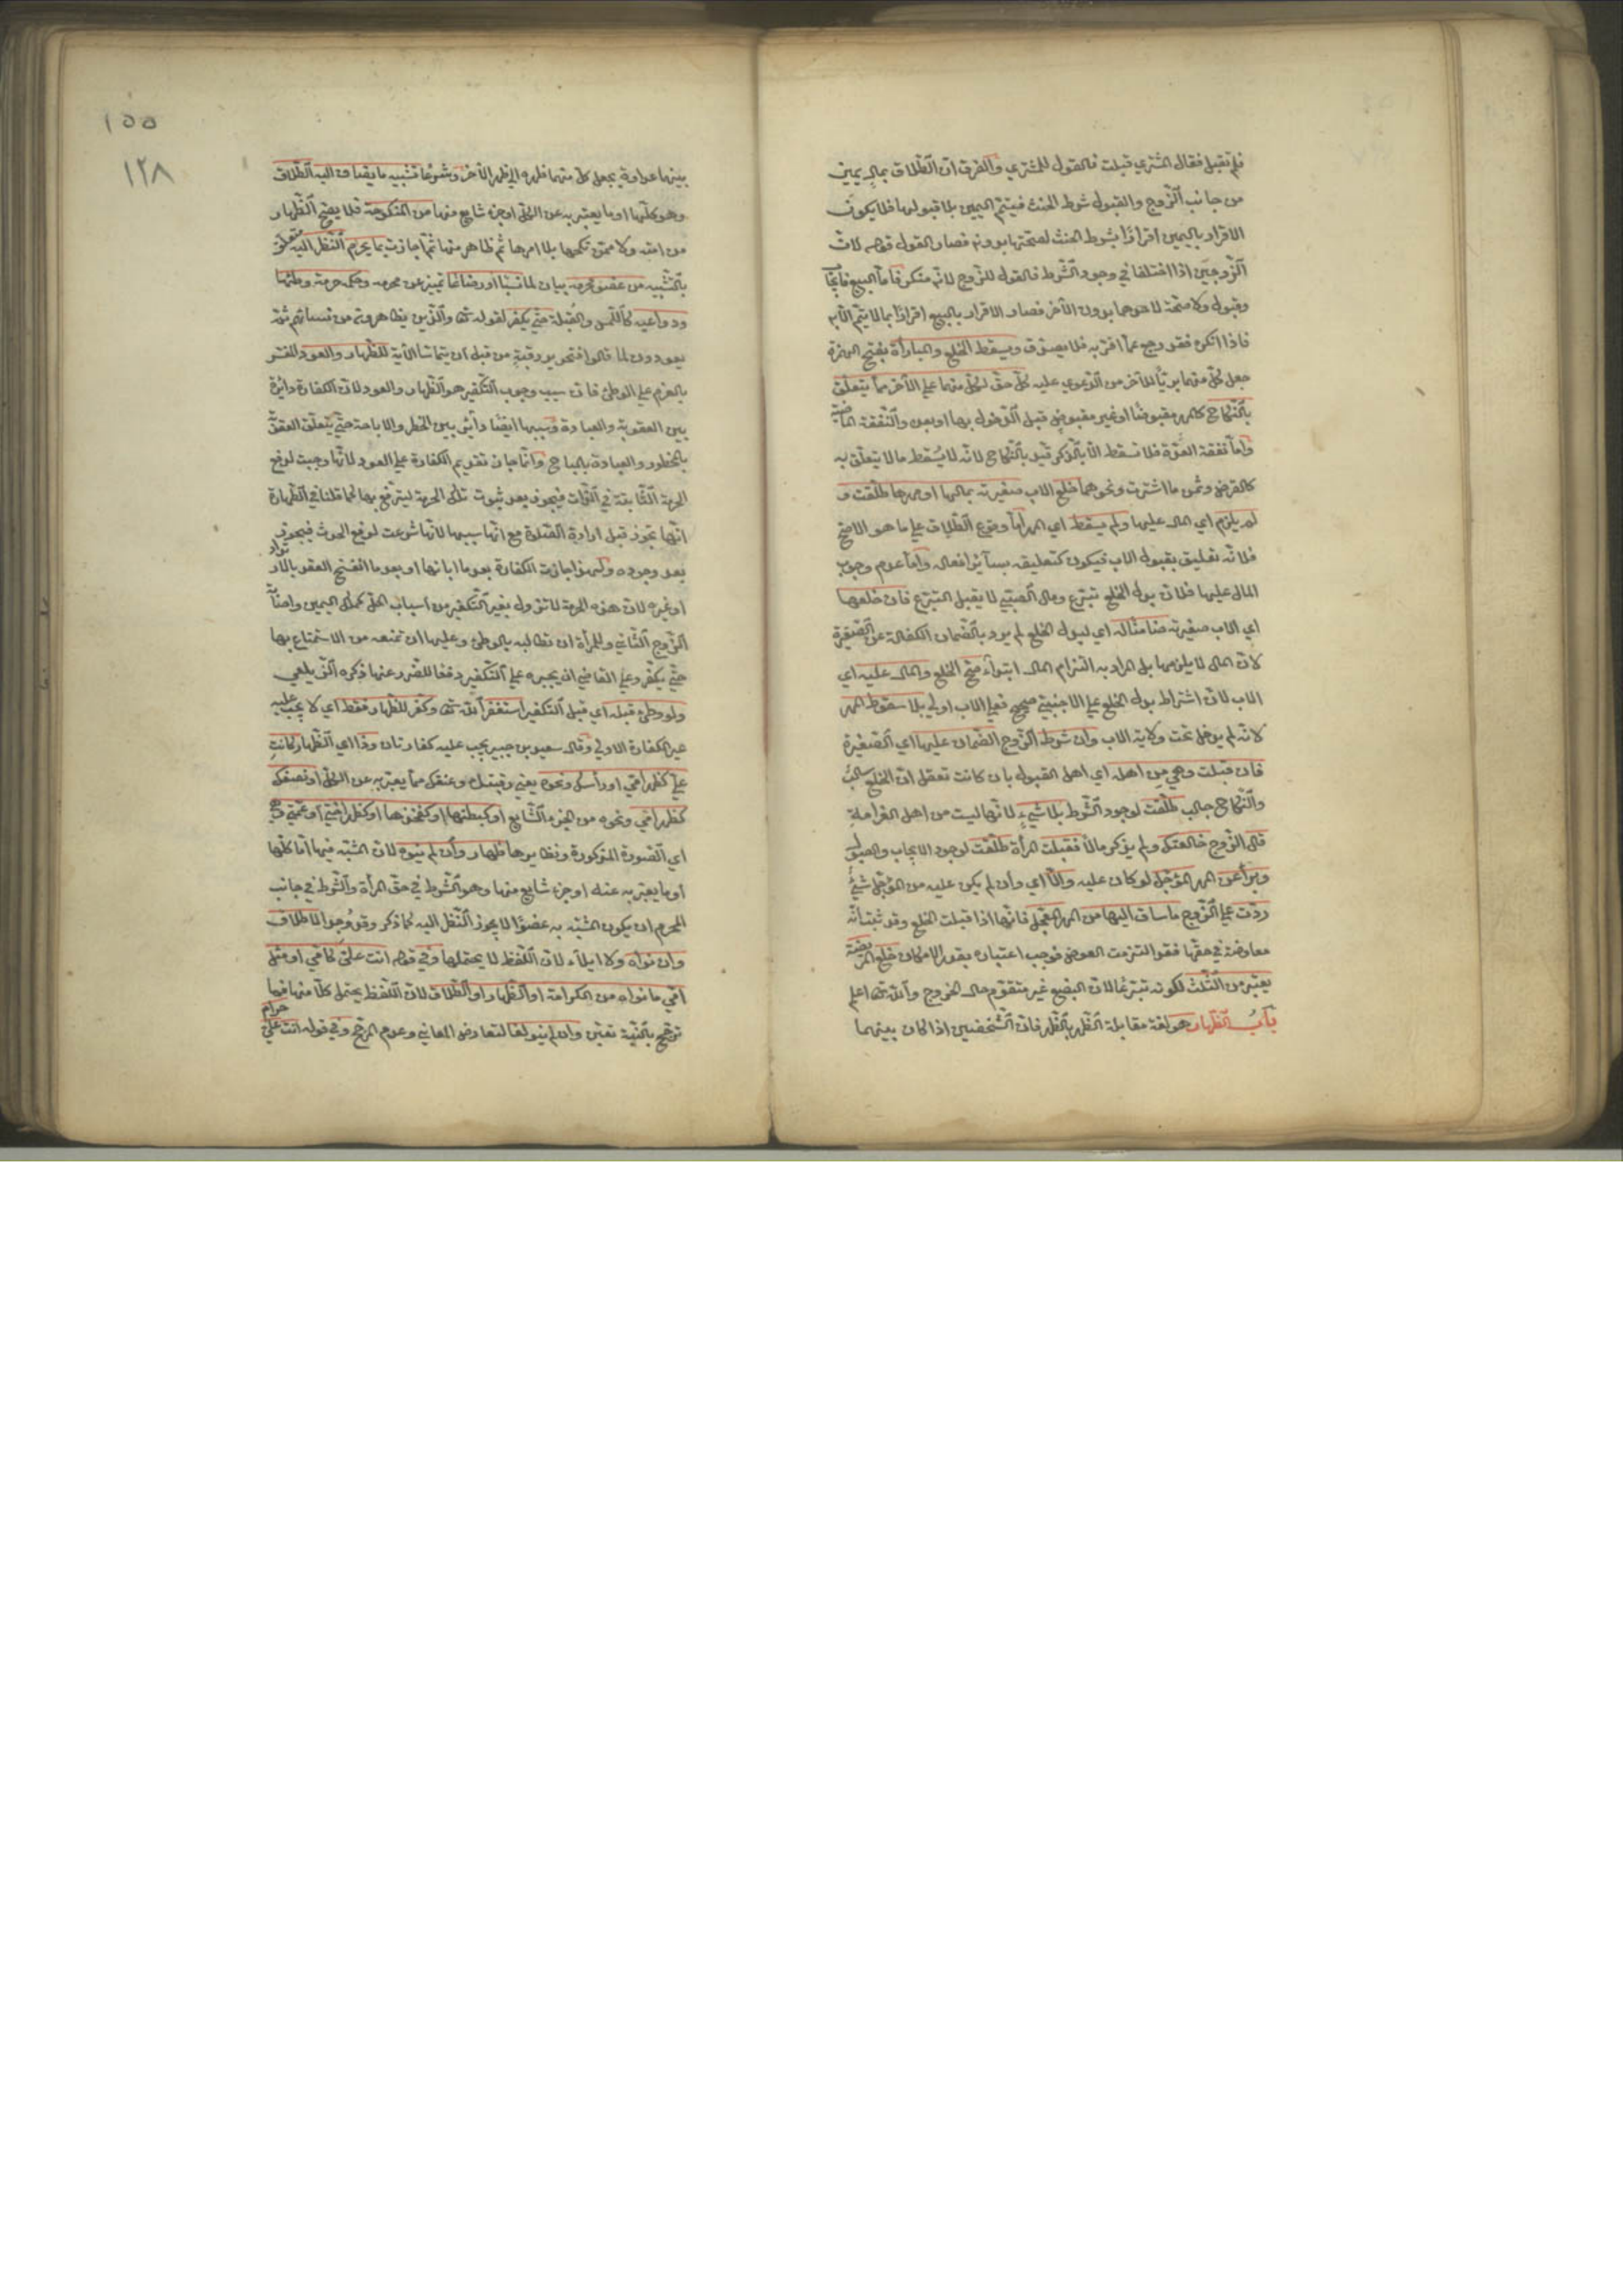 فلم تقبل فقال المشتري قبلت فالقول للمشتري والفرق ان الطلاق بمال يمين
من جانب الزوج والقبول شرط الحنث فيتم اليمين بلا قبولها فلا يكون
الاقرار باليمين اقرارًا بشرط الحنث لصحتها بدونه فصار القول قوله لان
الزوجين اذا اختلفا في وجود الشرط فالقول للزوج لانه منكر فاما البيع فايجاب
وقبول ولا صحة لاحدهما بدون الآخر فصار الاقرار بالبيع اقرارًا بما لا يتم الا به
فاذا انكره فقد رجع عما اقر به فلا يصدق ويسقط الخلع والمبارأة بفتح الهمزة
جعل كل منهما بريًا للآخر من الدعوى عليه كل حق لكل منهما على الآخر مما يتعلق
بالنكاح كالمهر مقبوضًا او غير مقبوض قبل الدخول بها او بعده والنفقة الماضية
واما نفقة العدة فلا تسقط الا بالذكر قيد بالنكاح لانه لا يسقط ما لا يتعلق به
كالقرض وثمن ما اشترت ونحوهما خلع الاب صغيرته بمالها او مهرها طلقت و
لم يلزم اي المال عليها ولم يسقط اي المهر اما وقوع الطلاق على ما هو الاصح
فلانه تعليق بقبول الاب فيكون كتعليقه بسائر افعاله واما عدم وجوب
المال عليها فلان بدل الخلع تبرع ومال الصبي لا يقبل التبرع فان خلعها
اي الاب صغيرته ضامنًا له اي لبدل الخلع لم يرد بالضمان الكفالة عن الصغيرة
لان المال لا يلزمها بل المراد به التزام المال ابتداء صح الخلع والمال عليه اي
الاب لان اشتراط بدل الخلع على الاجنبي صحيح فعلى الاب اولى بلا سقوط المهر
لانه لم يدخل تحت ولاية الاب وان شرط الزوج الضمان عليها اي الصغيرة
فان قبلت وهي من اهله اي اهل القبول بان كانت تعقل ان الخلع سالب
والنكاح جالب طلقت لوجود الشرط بلا شيء لانها ليست من اهل الغرامة
قال الزوج خالعتك ولم يذكر مالًا فقبلت المرأة طلقت لوجود الايجاب والقبول
وبرأ عن المهر المؤجل لو كان عليه والا اي وان لم يكن عليه من المؤجل شيء
ردت على الزوج ما ساق اليها من المهر المعجل فانها اذا قبلت الخلع وقد ثبت انه
معاوضة في حقها فقد التزمت العوض فوجب اعتباره بقدر الامكان خلع المريضة
يعتبر من الثلث لكونه تبرعًا لان البضع غير متقوم حال الخروج والله تعالى اعلم
باب الظهار هو لغة مقابلة الظهر بالظهر فان الشخصين اذا كان بينهما
١٥٥
١٢٨
بينهما عداوة يجعل كل منهما ظهره الى ظهر الآخر وشرعًا تشبيه ما يضاف اليه الطلاق
وهو كلها او ما يعبر به عن الكل او جزء شايع منها من المنكوحة فلا يصح الظهار
من امته ولا ممن نكحها بلا امرها ثم ظاهر منها ثم اجازت بما يحرم النظر اليه متعلق
بالتشبيه من عضو محرمه بيان لما نسبًا او رضاعًا تمييز عن محرمه وحكمه حرمة وطئها
ودواعيه كاللمس والقبلة حتى يكفر لقوله تعالى والذين يظاهرون من نسائهم ثم
يعودون لما قالوا فتحرير رقبة من قبل ان يتماسا الآية للظهار والعود المفسر
بالعزم على الوطئ فان سبب وجوب التكفير هو الظهار والعود لان الكفارة دائرة
بين العقوبة والعبادة وسببها ايضًا دائر بين الحظر والاباحة حتى يتعلق العقوبة
بالمحظور والعبادة بالمباح وانما جاز تقديم الكفارة على العود لانها وجبت لرفع
الحرمة الثابتة في الذات فيجوز بعد ثبوت تلك الحرمة ليرتفع بها كما قلنا في الطهارة
انها تجوز قبل ارادة الصلوة مع انها سببها لانها شرعت لرفع الحدث فيجوز
بعد وجوده ولهذا جازت الكفارة بعد ما ابانها او بعد ما انفسخ العقد بالارتداد
او غيره لان هذه الحرمة لا تزول بغير التكفير من اسباب الحل كملك اليمين واصابة
الزوج الثاني وللمرأة ان تطالبه بالوطئ وعليها ان تمنعه من الاستمتاع بها
حتى يكفر وعلى القاضي ان يجبره على التكفير دفعًا للضرر عنها ذكره الزيلعي
ولو وطئ قبله اي قبل التكفير استغفر الله تعالى وكفر للظهار فقط اي لا يجب عليه
غير الكفارة الاولى وقال سعيد بن جبير يجب عليه كفارتان وذا اي الظهار كانت
علي كظهر امي او رأسك ونحوه يعني رقبتك وعنقك مما يعبر به عن الكل او نصفك
كظهر امي ونحوه من الجزء الشايع او كبطنها او كفخذها او كظهر اختي او عمتي وهي
اي الصورة المذكورة ونظايرها ظهار وان لم ينوه لان المشبه فيها اما كلها
او ما يعبر به عنه او جزء شايع منها وهو الشرط في حق المرأة والشرط في جانب
المحرم ان يكون المشبه به عضوًا لا يجوز النظر اليه كما ذكر وقد وجد لا طلاق
وان نواه ولا ايلاء لان اللفظ لا يحتملها وفي قوله انت علي كامي او مثل
امي ما نواه من الكرامة او الظهار او الطلاق لان اللفظ يحتمل كلًا منها فما
ترجح بالنية تعين وان لم ينو لغا لتعارض المعاني وعدم المرجح وفي قوله انت علي حرام